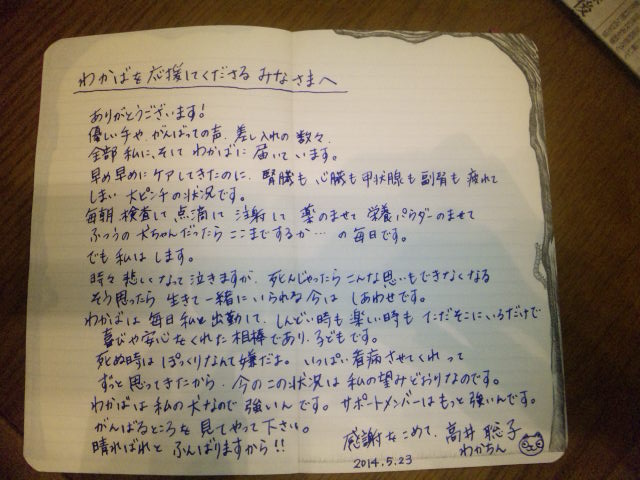 わかばを応援してくださる みなさまへ
ありがとうございます!
優しい手や、がんばっての声、差し入れの数々、
全部 私に、そして わかばに 届いています。
早め早めに ケアしてきたのに、腎臓も 心臓も 甲状腺も 副腎も 疲れて
しまい 大ピンチの状況です。
毎朝 検査して 点滴して 注射して 薬のませて 栄養パウダーのませて
ふつうの犬ちゃんだったら ここまでするか… の毎日です。
でも 私は します。
時々 悲しくなって 泣きますが、死んじゃったら こんな思いもできなくなる
そう思ったら 生きて一緒にいられる今は しあわせです。
わかばは 毎日 私と 出勤して、しんどい時も 楽しい時も ただそこにいるだけで
喜びや安心をくれた 相棒であり、子どもです。
死ぬ時は ぽっくりなんて嫌だよ。いっぱい看病させてくれって
ずっと 思ってきたから 今のこの状況は 私の望みどおりなのです。
わかばは 私の犬なので 強いんです。サポートメンバーは もっと 強いんです。
がんばるところを 見てやって下さい。
晴ればれと ふんばりますから!!
感謝をこめて、高井 聡子
わかちん
2014.5.23
後